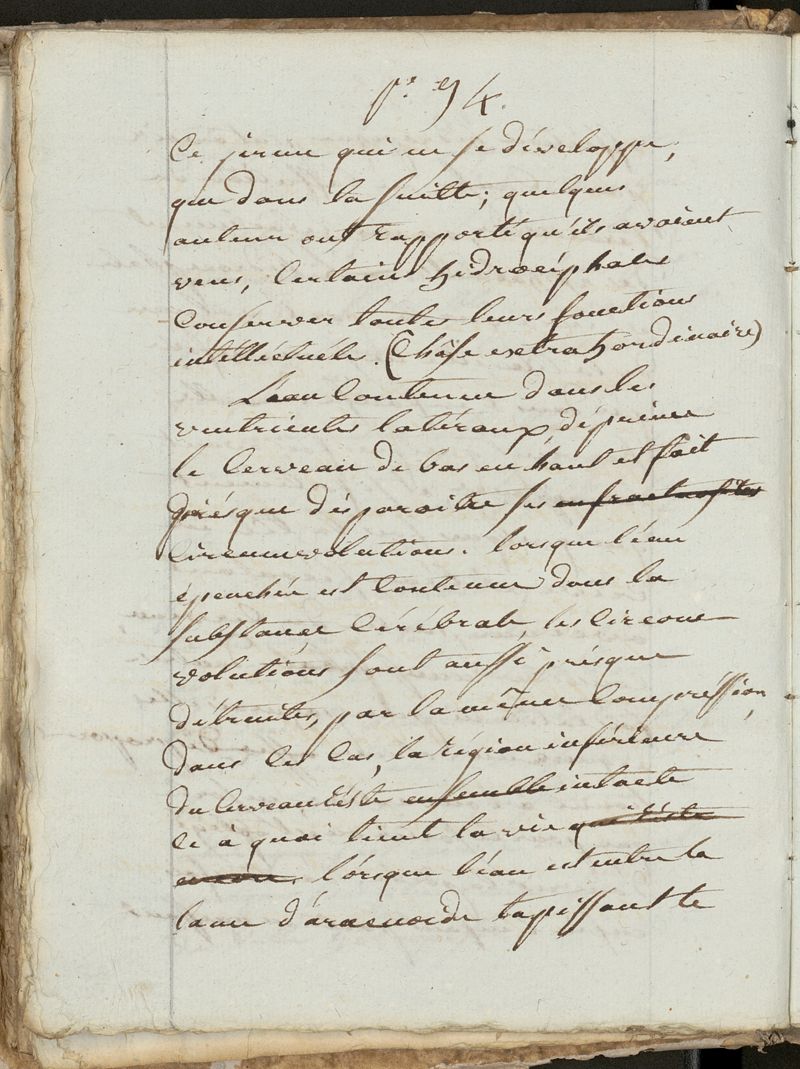 pe 94.
Ce jerme qui ne se développe,
que dans la suitte; quelques
auteur ont rapporté qu'ils avoient
veus, Certains hidrocéphales
Conserver toutes leurs fonctions
intelléctuéles. (Chôse extrahordinaire)
L'eau Contenue dans les
ventricules latéraux déprime
le Cerveau de bas en haut et fait
présque désparoitre ses enfractuosités
Circonvolutions. lorsque l'éau
épenchée est Contenue dans la
substance Cérébrale les Circon
volutions sont aussi présque
détruites, par la même Compréssion,
dans ces Cas, la région inférieure
du Cerveau réste ensemble intacte
ce à quoi tient la vie qui réste
encore. lórsque l'éau est entre la
lame d'áracnoide tapissant le